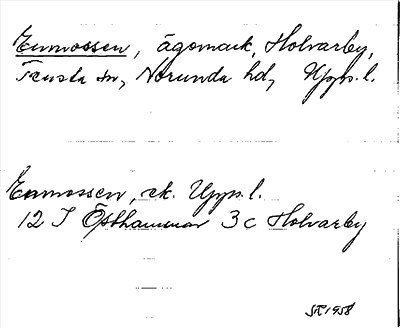 Enmossen, ägomark, Holvarby,
Tensta sn, Norunda hd, Upps. l.
Enmossen, ek. Upps. l.
12 I Östhammar 3c Holvarby
1958